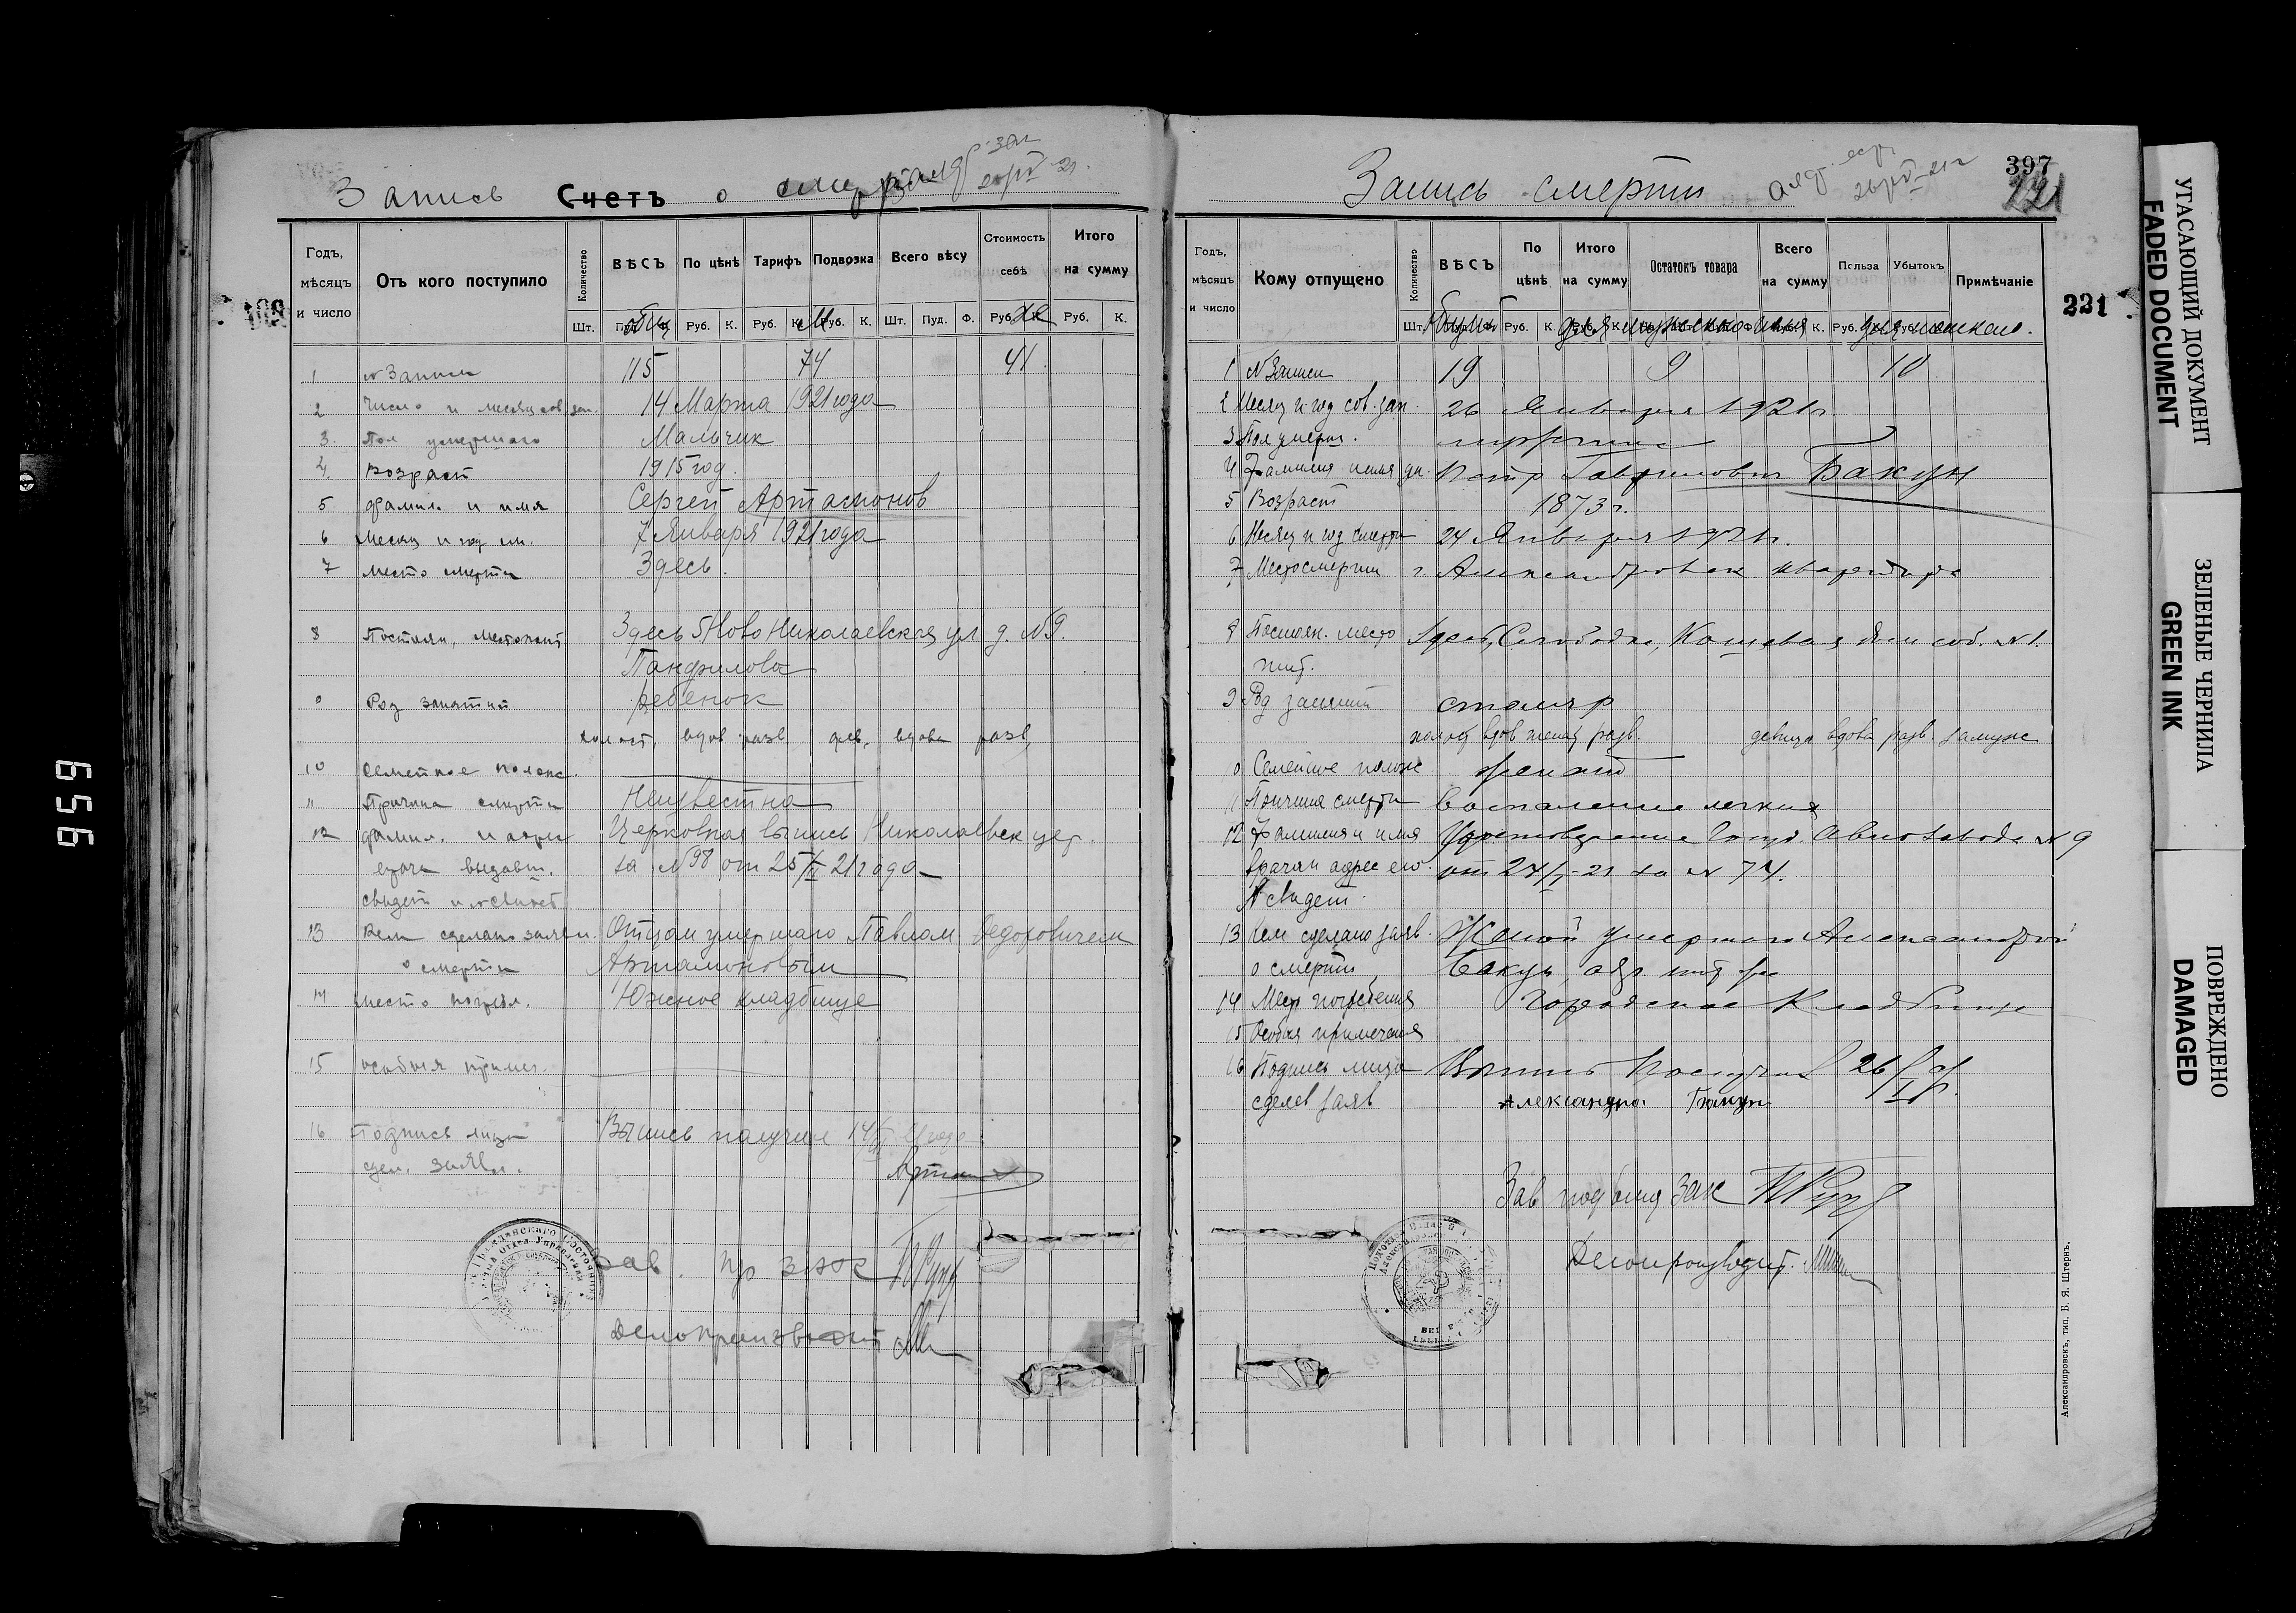 Запись Счетъ о смерти
Годъ, мѣсяцъ и число
Отъ кого поступило
Количество
ВѢСЪ
По цѣнѣ
Тарифъ
Подвозка
Всего вѣсу
Стоимость себѣ
Итого на сумму
Шт. Пуд. Ф. Руб. К. Руб. К. Руб. К. Шт. Пуд. Ф. Руб. К. Руб. К.
общ м ж
1 № Записи 115 74 41
2 Число и месяц сов. зап. 14 Марта 1921 года
3. Пол умершаго Мальчик
4. Возраст 1915 год.
5 Фамил. и имя Сергей Артамонов
6 Месяц и год см. 7 Января 1921 года
7 Место смерти Здесь.
8 Постоян. местожит. Здесь Ново Николаевская ул д. №9.
Панфилова
9 Род занятий ребенок
холост, вдов разв дев, вдова разв,
10 Семейное полож.
11 Причина смерти Неизвестна
12 Фамил. и адрес Церковная выпись Николаевск цер.
врача выдавш. за №98 от 25/III 21 года
свидет и № свидет
13 Кем сделано заявл. Отцом умершаго Павлом Федоровичем
о смерти Артамоновым
14 Место погребл. Южное кладбище
15 Особыя примеч.
16 Подпись лица Выпись получил 14/III 21 года
сдел. заявл. Артам
Зав. п/о ЗАГС
Делопроизводит
Запись смерти
397
221
231
Годъ, мѣсяцъ и число
Кому отпущено
Количество
ВѢСЪ
По цѣнѣ
Итого на сумму
Остатокъ товара
Всего на сумму
Польза
Убытокъ
Примѣчаніе
общий для мужского пола для женского.
1 № Записи 19 9 10
2 Месяц и год сов. зап. 26 Января 1921 г.
3 Пол умерш. мужчина
4 Фамилия и имя ум. Петр Гаврилович Бакун
5 Возраст 1873 г.
6 Месяц и год смерти 24 Января 1921 г.
7 Место смерти г. Александровск квартира
8 Постоян. место Здесь, Слободка, Кошевая дом соб. №1.
жит.
9 Род занятий столяр
холост вдов женат разв. девица вдова разв. замуж.
10 Семейное полож женат
11 Причина смерти Воспаление легких
12 Фамилия и имя Удостоверение Госуд. Авиозавода №9
врача и адрес его. от 24/I-21 за №74.
№ свидет.
13 Кем сделано заяв. Женой умершего Александрой
о смерти Бакун, адр. тот же
14 Место погребения Городское Кладбище
15 Особыя примечания
16 Подпись лица Выпись получил 26/I 21 г.
сделав заяв Александра Бакун
Зав подотд ЗАГС
Делопроизводит.
Александровскъ, тип. Б. Я. Штернъ.
959
УГАСАЮЩИЙ ДОКУМЕНТ
FADED DOCUMENT
ЗЕЛЕНЫЕ ЧЕРНИЛА
GREEN INK
ПОВРЕЖДЕНО
DAMAGED